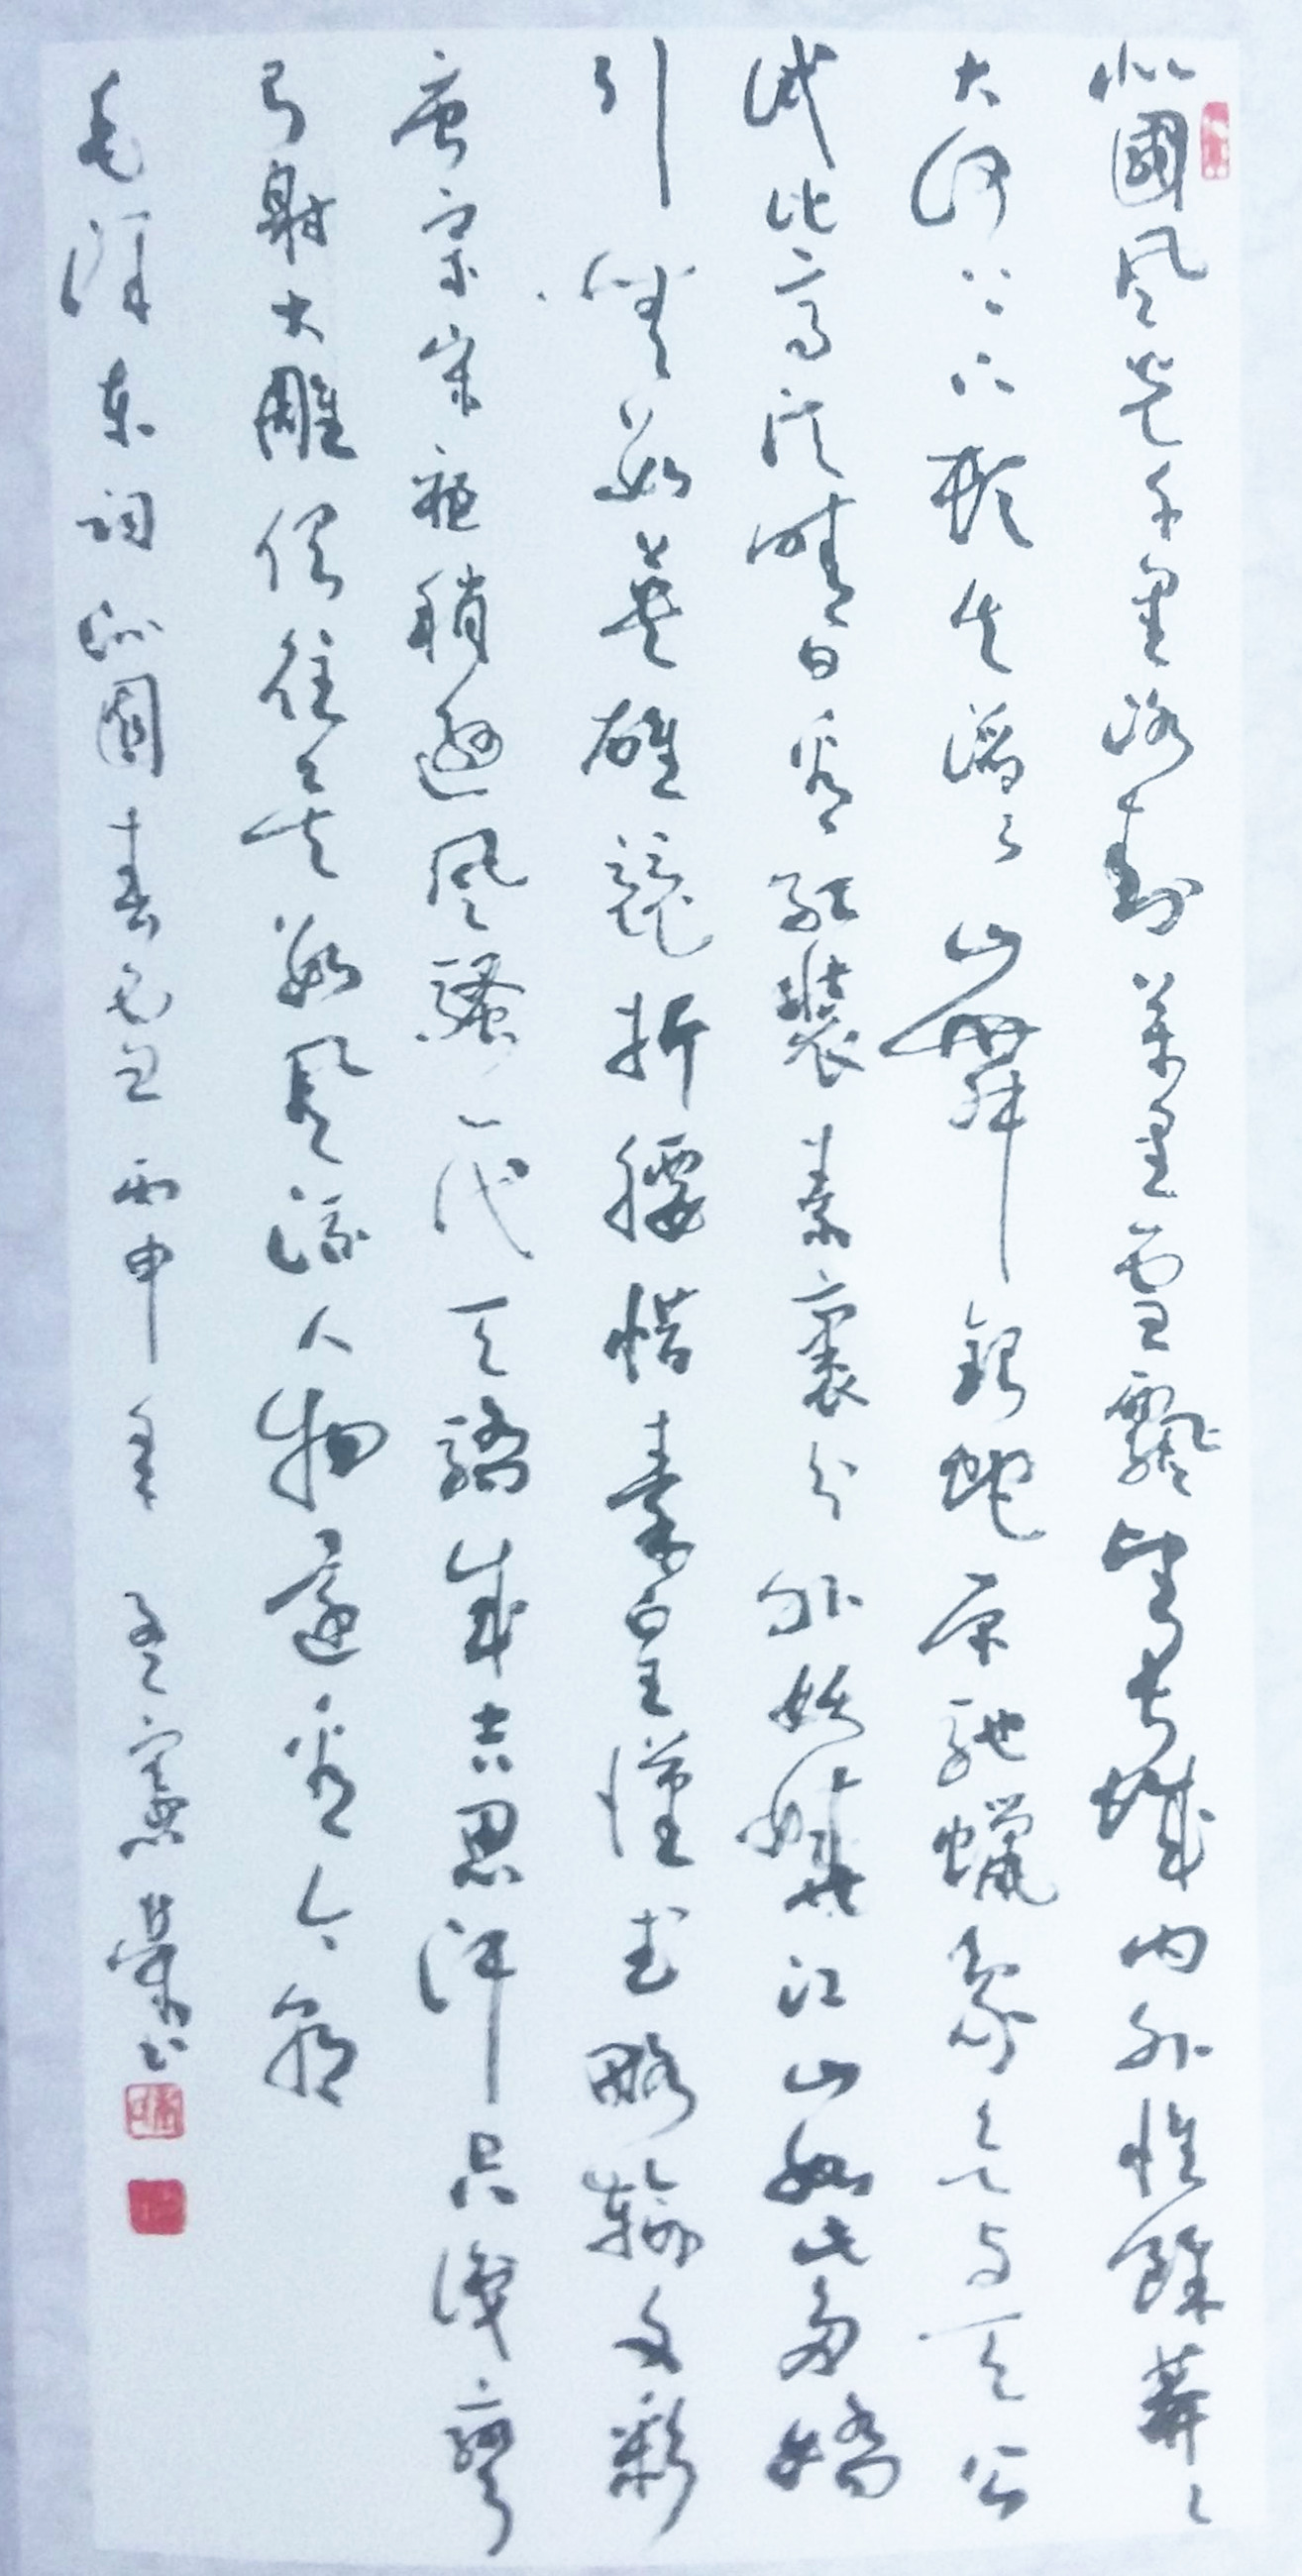 北國風光千里冰封萬里雪飄望長城内外惟餘莽々
大河上下頓失滔々山舞銀蛇原馳蠟象欲与天公
試比高須晴日看紅裝素裹分外妖嬈江山如此多嬌
引無數英雄競折腰惜秦皇漢武略輸文彩
唐宗宋祖稍遜風騷一代天驕成吉思汗只識彎
弓射大雕俱往矣數風流人物還看今朝
毛澤東詞沁園春雪丙申